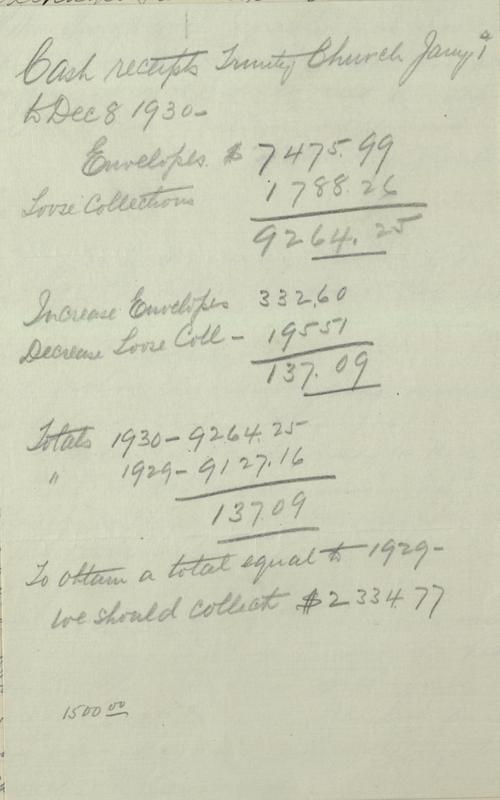 Cash receipts Trinity Church Jany 1st
to Dec 8 1930-
Envelopes $ 7475.99
Loose Collections 1788.26
9264.25
Increase Envelopes 332.60
Decrease Loose Coll - 195 51
137.09
Totals 1930 - 9264.25
" 1929 - 9127.16
137 09
To obtain a total equal to 1929-
we should collect $2334.77
1500 00